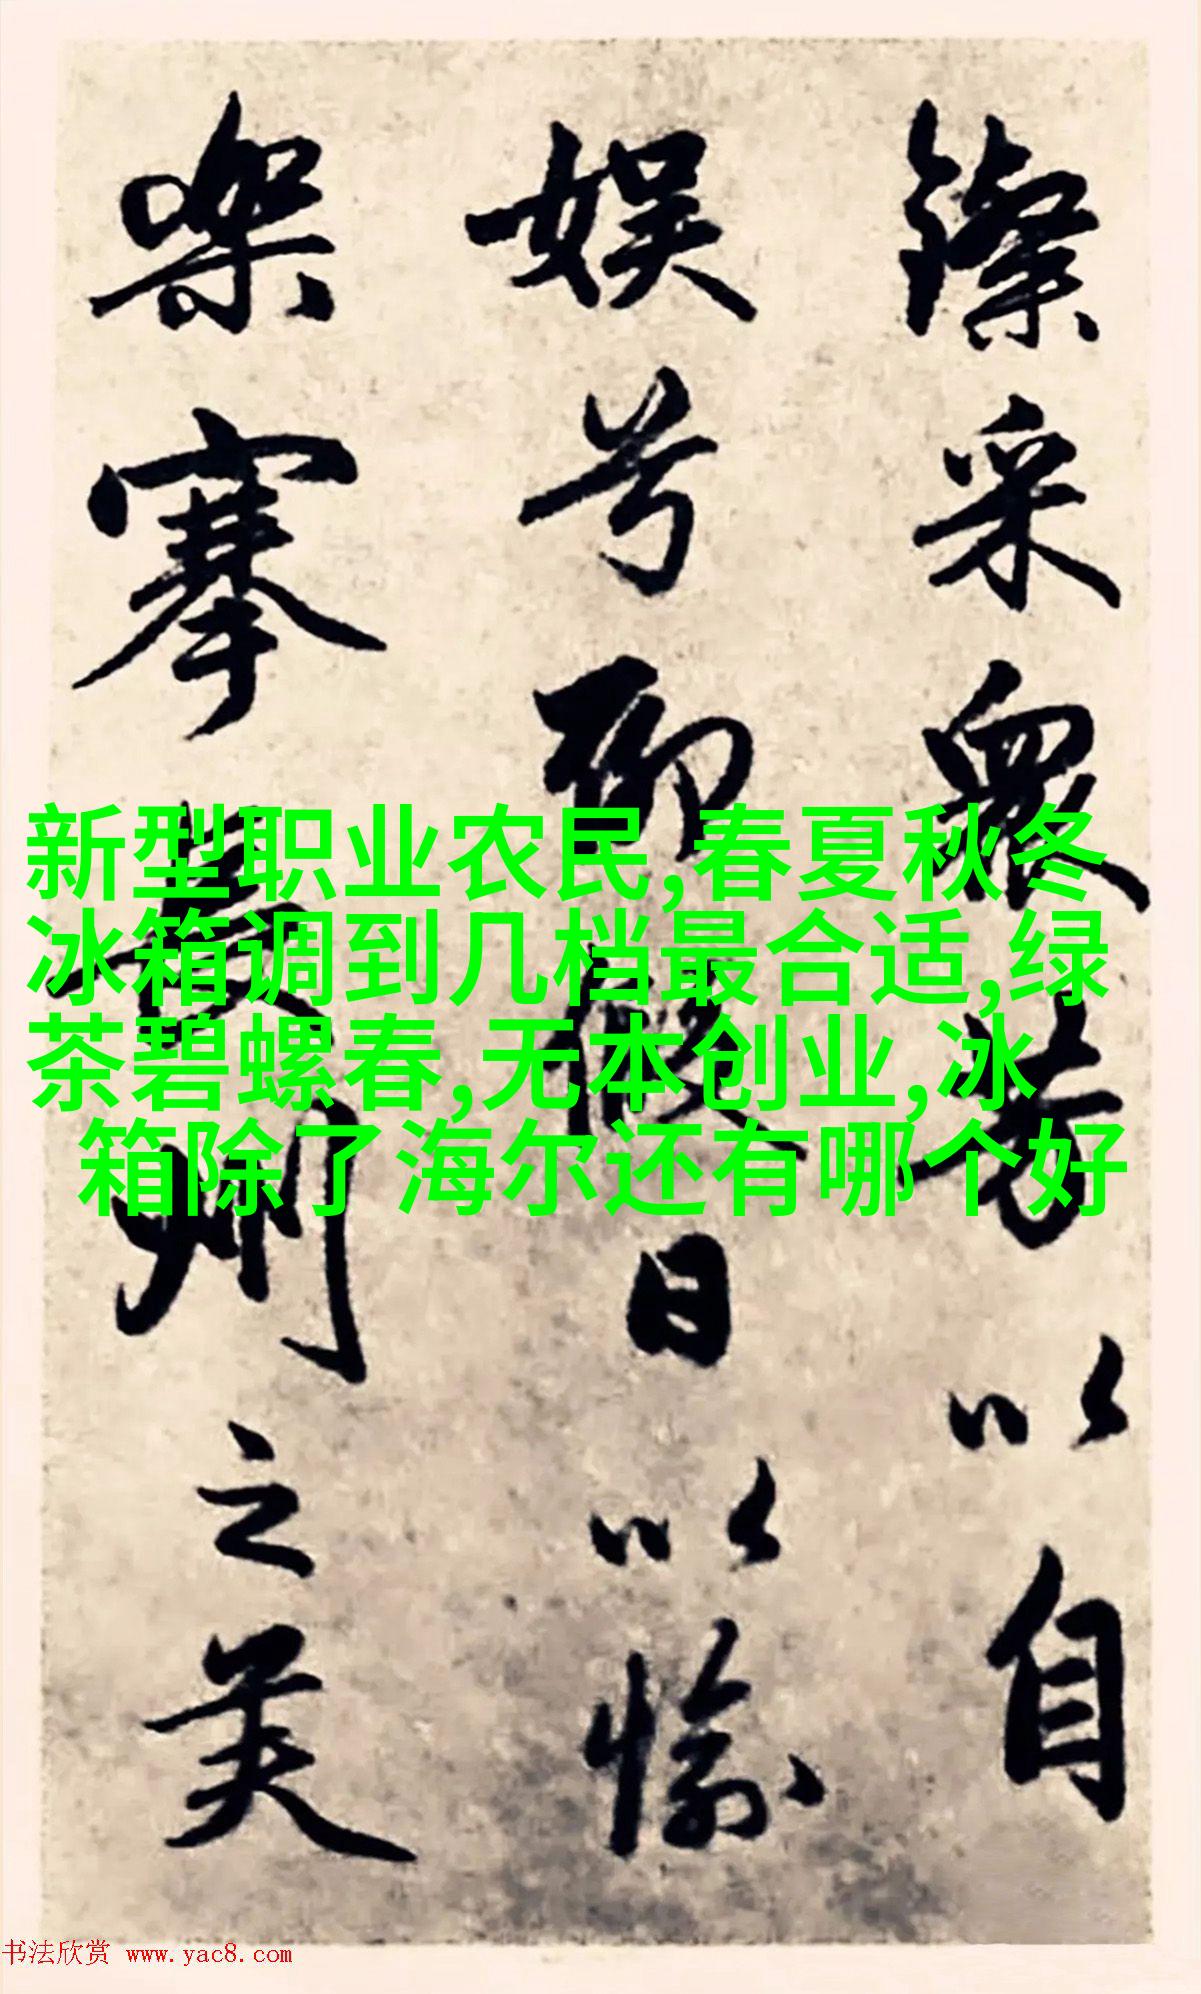 采眾芳以自
娛兮聊日以愉
樂搴長洲之芙
新型职业农民,春夏秋冬
冰箱调到几档最合适,绿
茶碧螺春,无本创业,冰
箱除了海尔还有哪个好
书法欣赏 www.yac8.com